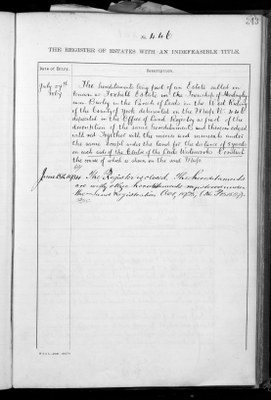 No. 446
THE REGISTER OF ESTATES WITH AN INDEFEASIBLE TITLE.
Date of Entry.
Description.
July 29th
1869
The hereditaments being part of an Estate called or
known as Foxhill Estate, in the Township of Headingley
cum Burley in the Parish of Leeds in the West Riding
of the County of York delineated in the Map No. 446
deposited in the Office of Land Registry as part of the
description of the same hereditaments, and thereon edged
with red Together with the mines and minerals under
the same except under the land for the distance of
on each side of the of the Leeds Waterworks Conduit
the course of which is shown on the said Map
The Register is closed. The hereditaments
are with other hereditaments registered under
the Land Registration Act,